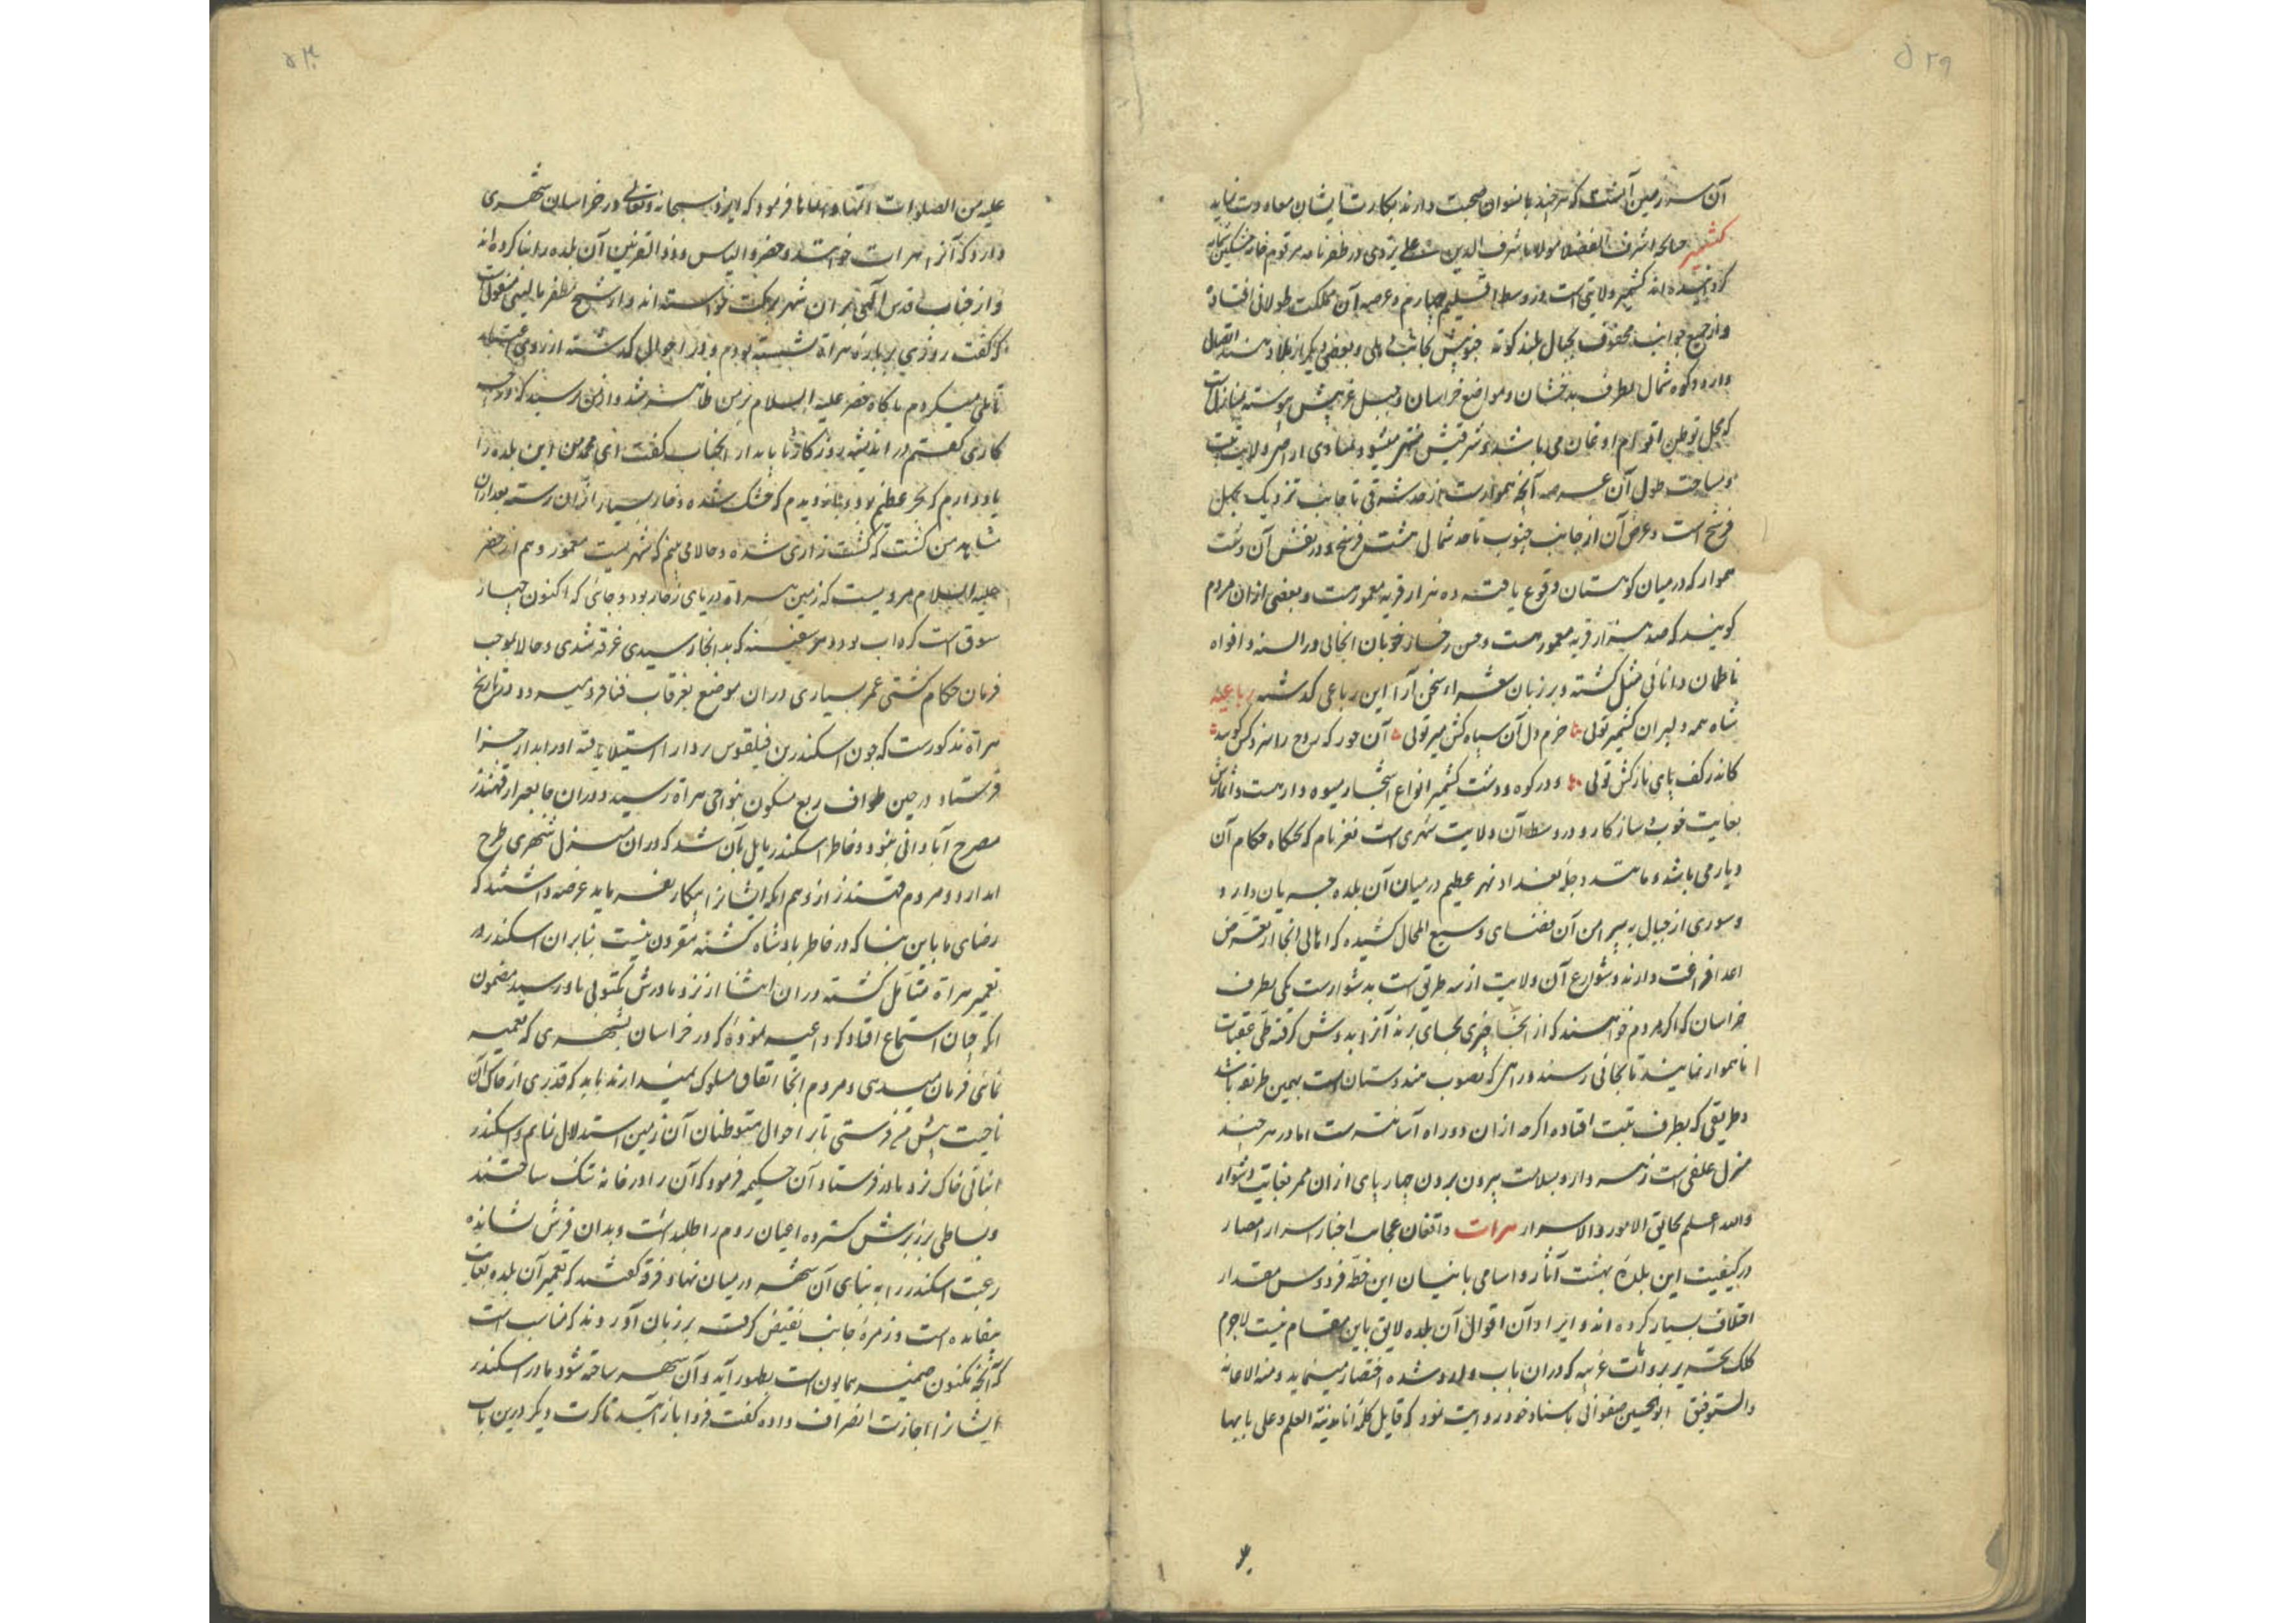 ۵۲۹
آن سرزمین آنست که هر چند با نسوان صحبت دارند بکارت با ایشان معاودت نماید
کشمیر چنانچه اشرف الفضلا مولانا شرف الدین علی یزدی در ظفرنامه مرقوم خامه مشکین شمامه
گردانیده اند کشمیر ولایتی است در وسط اقلیم چهارم و عرصه آن مملکت طولانی افتاده
و از جمیع جوانب محفوف بجبال بلند کوه جنوبیش بجانب دهلی و بعضی دیگر از بلاد هند اتصال
دارد و کوه شمال بطرف بدخشان و مواضع خراسان و جبل غربیش پیوسته بمنازلست
که محل توطن اقوام اوغان می باشد و شرقیش منتهی میشود بمبادی اراضی ولایت تبت
و مساحت طول آن عرصه آنچه هموارست از حد شرقی تا جانب نزدیک بچهل
فرسخ است و عرض آن از جانب جنوب تا حد شمال هشت فرسخ و در نفس آن دشت
هموار که در میان کوهستان وقوع یافته ده هزار قریه معمورست و بعضی از ان مردم
گویند که صد هزار قریه معمورست و حسن رخسار خوبان انجائی در السنه و افواه
ناظمان دانائی مثل گشته و بر زبان شعراء سخن آرا این رباعی گذشته رباعیه
شاه همه دلبران کشمیر توئی خرم دل آن سپاه کش میر توئی آن حور که روح را سزد کش گوید
کاندر کف پای نازکش توئی و در کوه و دشت کشمیر انواع اشجار میوه دار هست و اثمارش
بغایت خوب و سازگار و در وسط آن ولایت شهری است نغز نام که تختگاه حکام آن
دیار می باشد و مانند دجله بغداد نهر عظیم در میان آن بلده جریان دارد و
و سوری از جبال پیرامن آن فضای وسیع المجال کشیده که اهالی انجا از تعرض
اعدا فراغت دارند و شوارع آن ولایت از سه طریق است بدشوارست یکی بطرف
خراسان که اگر مردم خواهند که از انجا چیزی بجای برند آنرا بدوش گرفته طی عقبات
ناهموار نمایند تا بجائی رسند و راهی که بصوب هندوستان است بهمین طریق باشد
و طریقی که بطرف تبت افتاده اگرچه از ان دو راه آسانترست اما در هر چند
منزل علفی است زهر دارد و بسلامت بیرون بردن چهارپای از ان ممر بغایت دشوار
والله اعلم بحقایق الامور و الاسرار هرات واقفان عجایب اخبار اسرار امصار
در کیفیت این بلده بهشت آثار و اسامی بانیان این خطه فردوس مقدار
اختلاف بسیار کرده اند و ایراد آن اقوال آن بلده لایق باین مقام نیست لاجرم
کلک تحریر بروایات غریبه که در ان باب ورود شده اختصار مینماید و منه الاعانه
والتوفیق ابوالحسین صفوانی باسناد خود روایت نمود که قایل کلمه انا مدینة العلم و علی بابها
۵۳۰
علیه من الصلوات اتمها و انماها فرمود که ایزد سبحانه و تعالی در خراسان شهری
دارد که آنرا هرات خوانند و خضر و الیاس و ذوالقرنین آن بلده را بنا کرده اند
و از جناب قدس الهی بر ان شهر برکت خواسته اند و از شیخ مظفر بالینی منقولست
که گفت روزی بر باره هراة نشسته بودم و در احوال گذشته از روی
تاملی میکردم ناگاه خضر علیه السلام بر من ظاهر شد و از من پرسید که در چه
کاری گفتم در اندیشه روزگار ناپایدار انجناب گفت ای محمد من این بلده را
یاد دارم که بحر عظیم بود و باز دیدم که خشک شده و خار بسیار از ان رسته بعد از ان
مشاهد من گشت که کشت زاری شده و حالا می بینم که شهریست معمور و هم از خضر
علیه السلام مرویست که زمین هراة دریای زخار بود و جائی که اکنون چهار
سوق است گرداب بود و هر سفینه که بدانجا رسیدی غرقه شدی و حالا بموجب
فرمان حکام کشتی عمر بسیاری در ان موضع بغرقاب فنا فرو میرود و در تاریخ
هراة مذکورست که چون اسکندر بن فیلقوس بر دارا استیلا یافته او را بدار جزا
فرستاد در حین طواف ربع مسکون بنواحی هراة رسید و در ان جا بغیر از قهندز
مصرخ آبادانی نبود و خاطر اسکندر مایل بآن شد که در ان منزل شهری طرح
اندازد و مردم قهندز از وهم آنکه ایشانرا بیکار نفرماید عرضه داشتند که
رضای ما باین بنا که در خاطر پادشاه گشته مقرون نیست بنابران اسکندر در
تعمیر هراة متامل گشته در ان اثنا از نزد مادرش مکتوبی باو رسید مضمون
آنکه چنان استماع افتاد که داعیه نموده که در خراسان بشهری که تعمیر
نمائی فرمان میدهی و مردم انجا اتفاق سلوک نمیدارند باید که قدری از خاک آن
ناحیت پیش من فرستی تا بر احوال متوطنان آن زمین استدلال نمایم و اسکندر
انبانی خاک نزد مادر فرستاد آن حکیمه فرمود که آن را در خانه تنک ساختند
و بساطی بر زبرش گسترده اعیان روم را طلب داشت و بدان فرش نشانده
رغبت اسکندر را به بنای آن شهر در میان نهاد فرقه گفتند که تعمیر آن بلده بغایت
بیفایده است و زمره جانب نقیض گرفته بر زبان آوردند که مناسب است
که آنچه مکنون ضمیر همایون است بظهور آید و آن شهر ساخته شود مادر اسکندر
ایشانرا اجازت انصراف داده گفت فردا باز آیید تا کرت دیگر درین باب